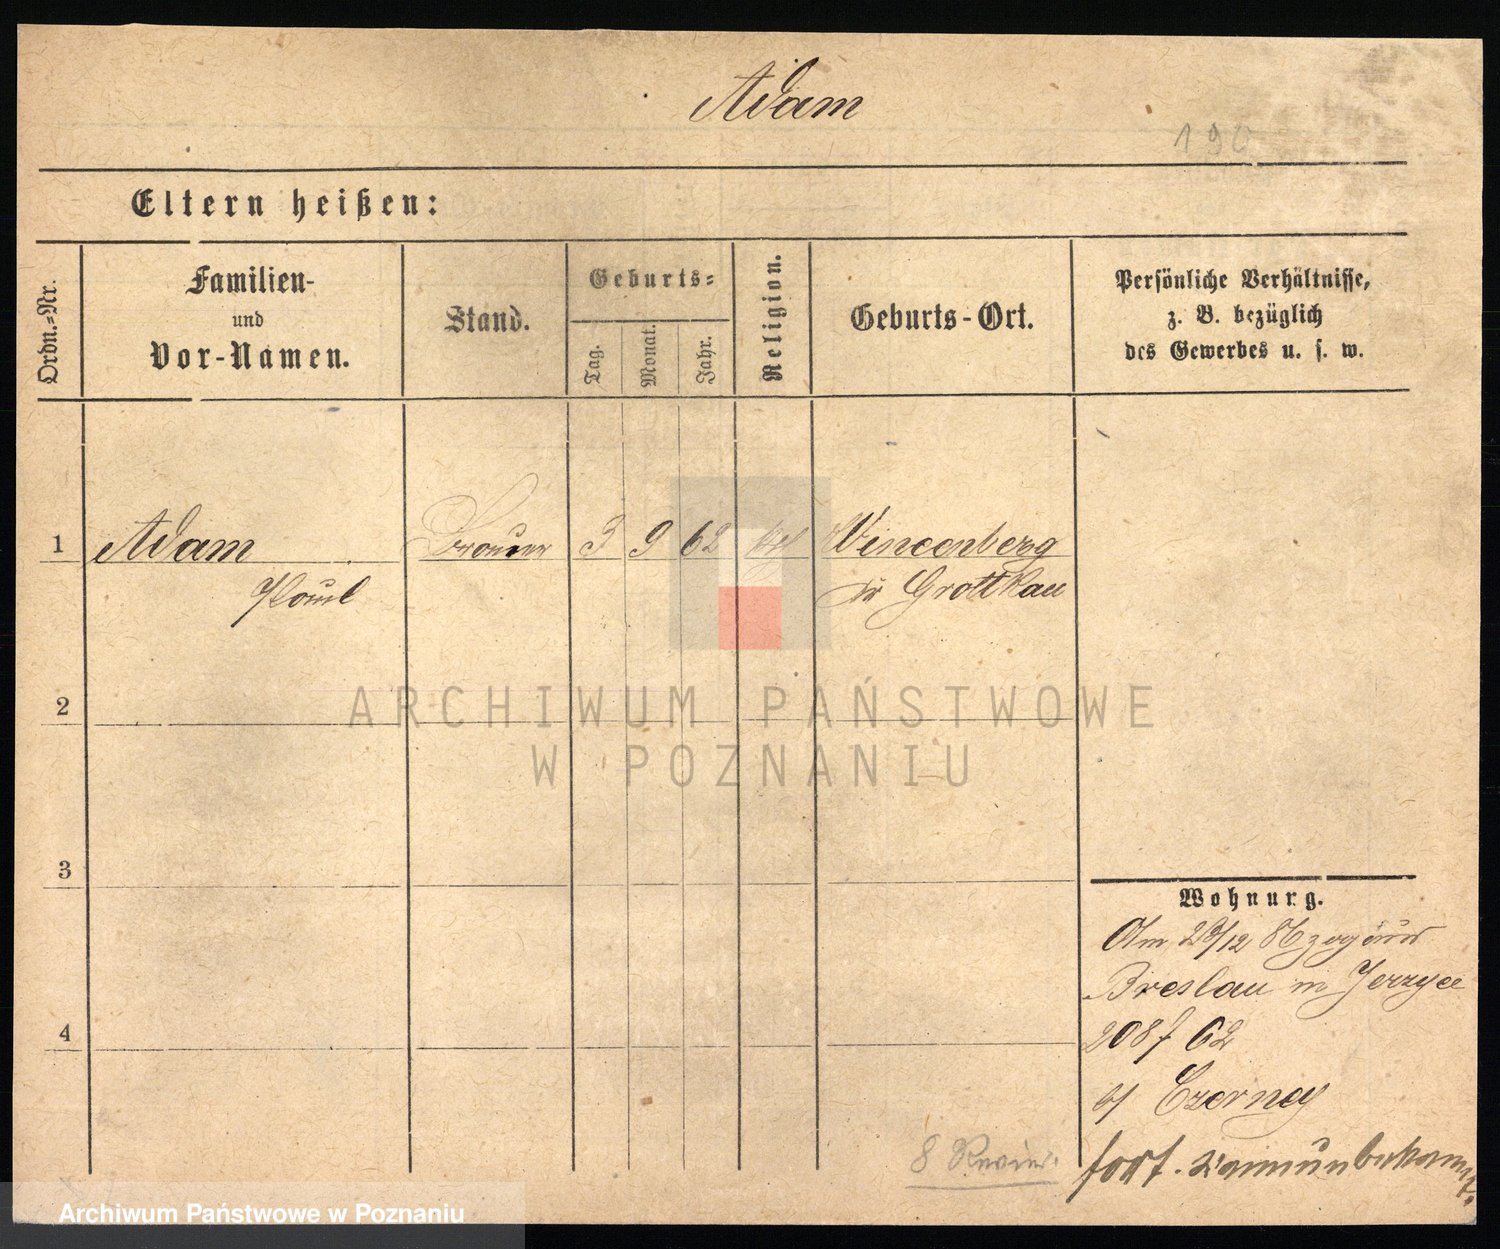 Adam
190
Eltern heißen:
Ordn.=Nr.
Familien-
und
Vor-Namen.
Stand.
Geburts=
Tag.
Monat.
Jahr.
Religion.
Geburts-Ort.
Persönliche Verhältnisse,
z. B. bezüglich
des Gewerbes u. s. w.
1 Adam Brauer 3 9 62 Wincenberg
Paul Kr Grottkau
2
3
4
Wohnung.
Am 29/12
Breslau in Jerzyce
208 f 62
b/ Czerney
fort.
8 Revier.
ARCHIWUM PAŃSTWOWE
W POZNANIU
Archiwum Państwowe w Poznaniu